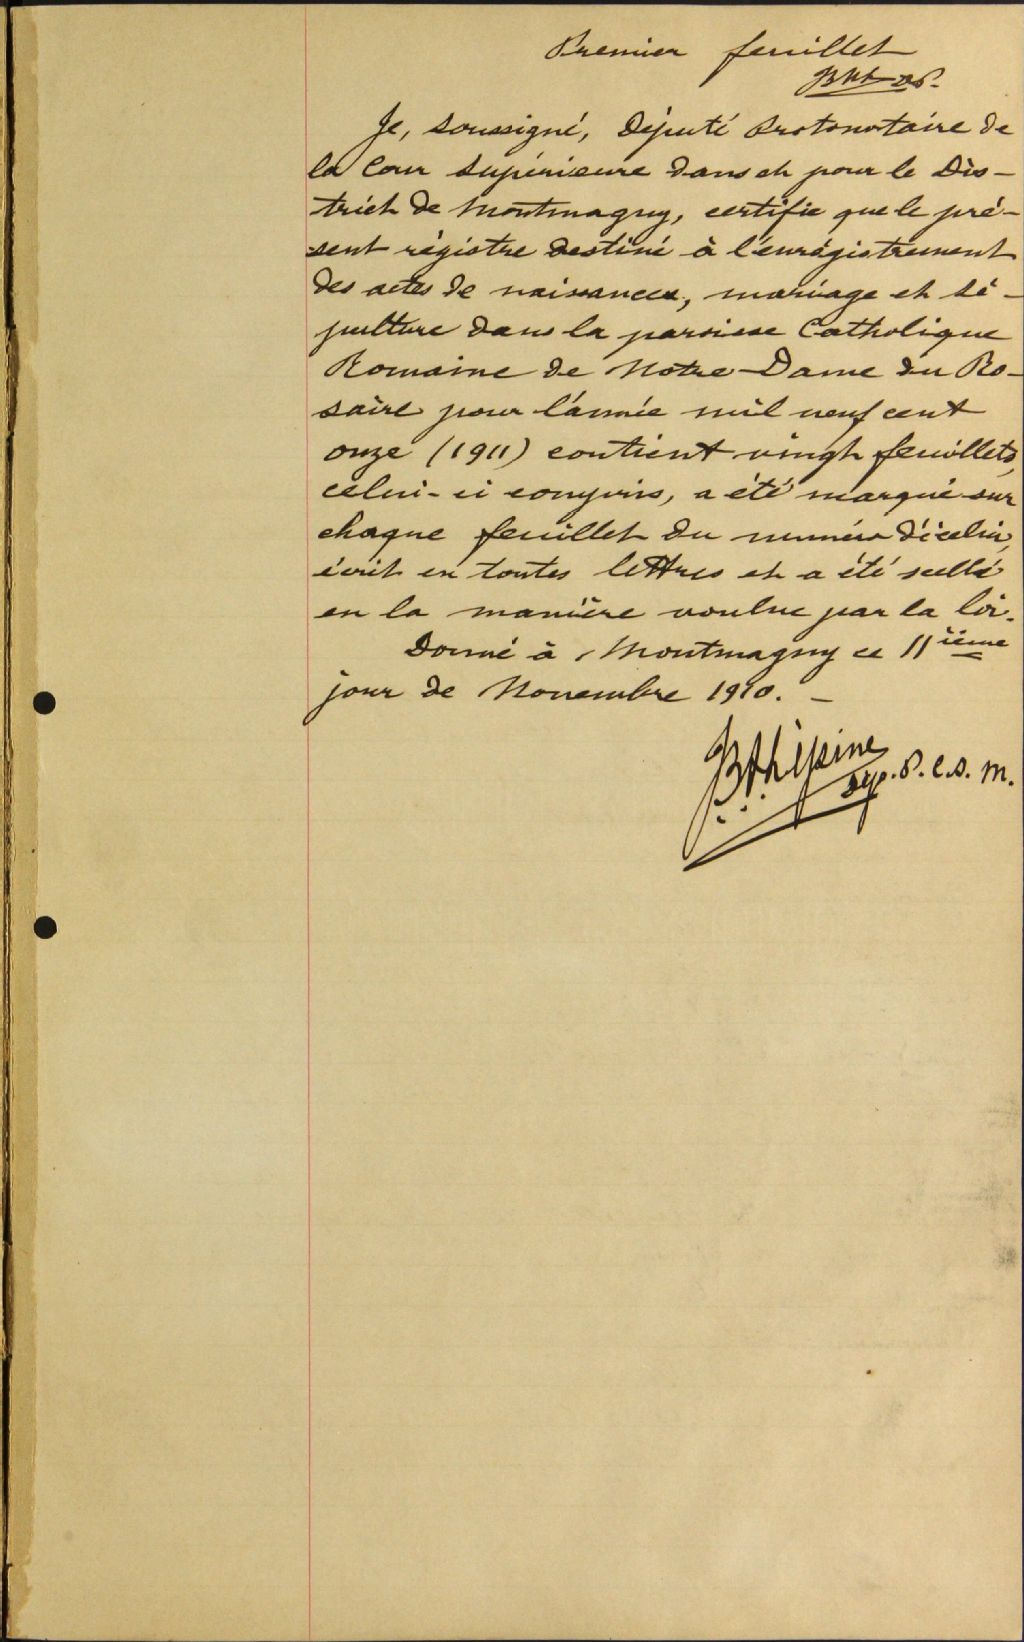 Premier feuillet
BAL DP.
Je, soussigné, Député Protonotaire de
la Cour Supérieure dans et pour le Dis-
trict de Montmagny, certifie que le pré-
sent régistre destiné à l'enrégistrement
des actes de naissances, mariage et sé-
pulture dans la paroisse Catholique
Romaine de Notre-Dame du Ro-
saire pour l'année mil neuf cent
onze (1911) contient vingt feuillets,
celui-ci compris, a été marqué sur
chaque feuillet du numéro d'icelui,
écrit en toutes lettres et a été scellé
en la manière voulue par la loi.
Donné à Montmagny ce 11ième
jour de Novembre 1910. —
Lépine
Dép. P. C. S. M.